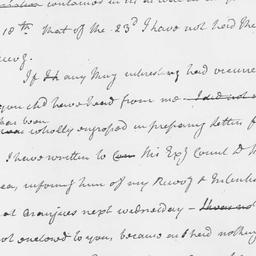 contained in
10th that of the 23d I have not had the
If any thing interesting had occurred
you shd have heard from me - I did not
has been
wholly engrossed in preparing letters f
I have written to His Exy Count D
informing him of my Recog & Intentio
at Aranjues next wednesday -
not enclosed to you, because as I had nothing